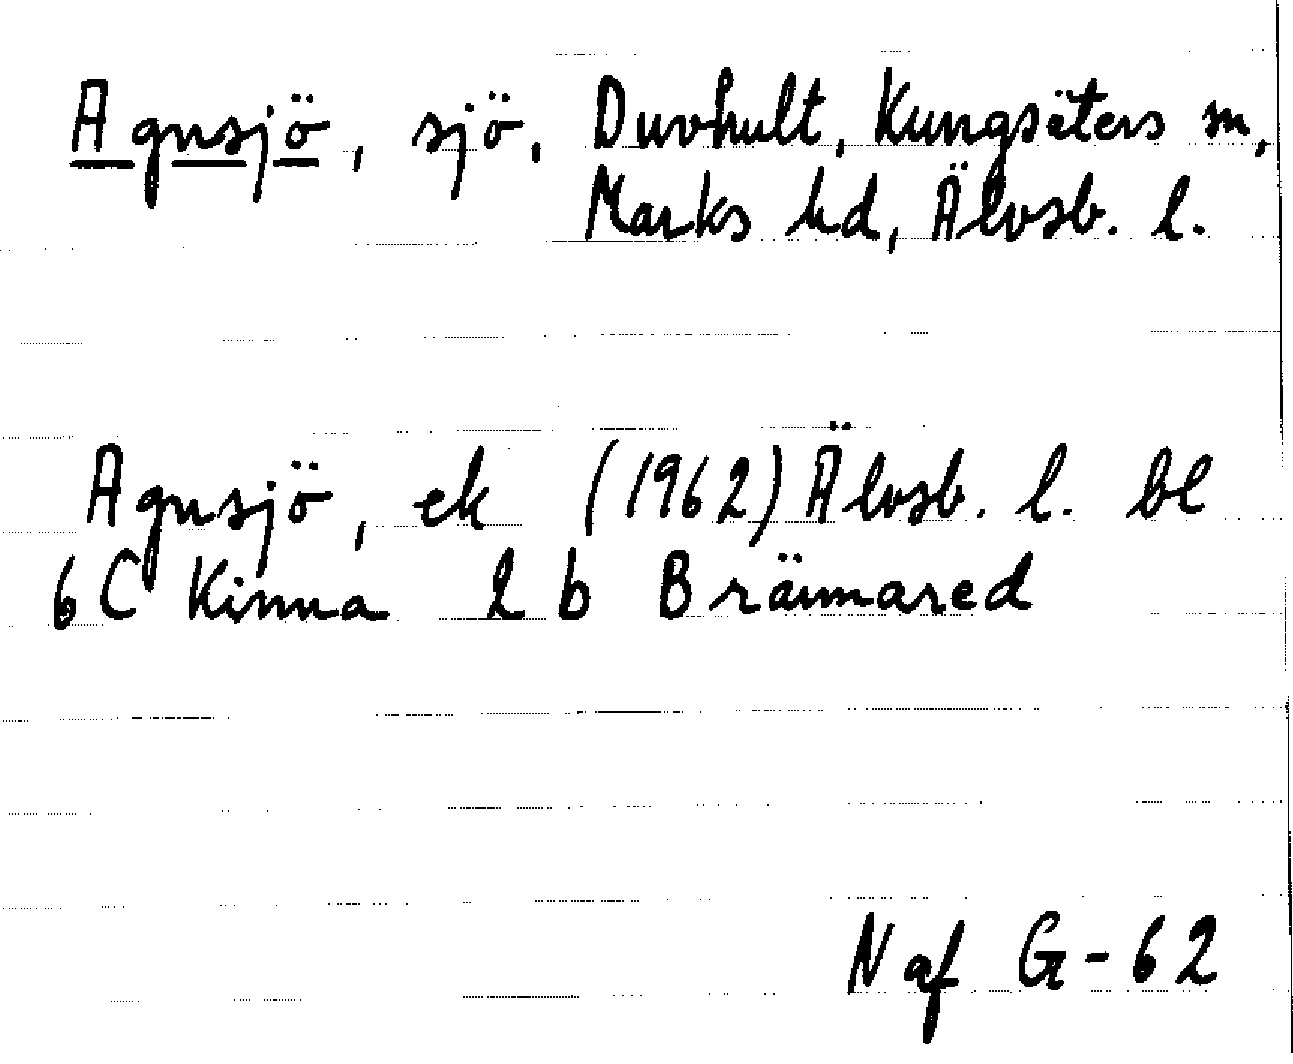 Agnsjö, sjö, Duvhult, Kungsäters sn,
Marks hd, Älvsb. l.
Agnsjö, ek (1962) Älvsb. l. bl
6C Kinna 2 b Brämared
N af G-62